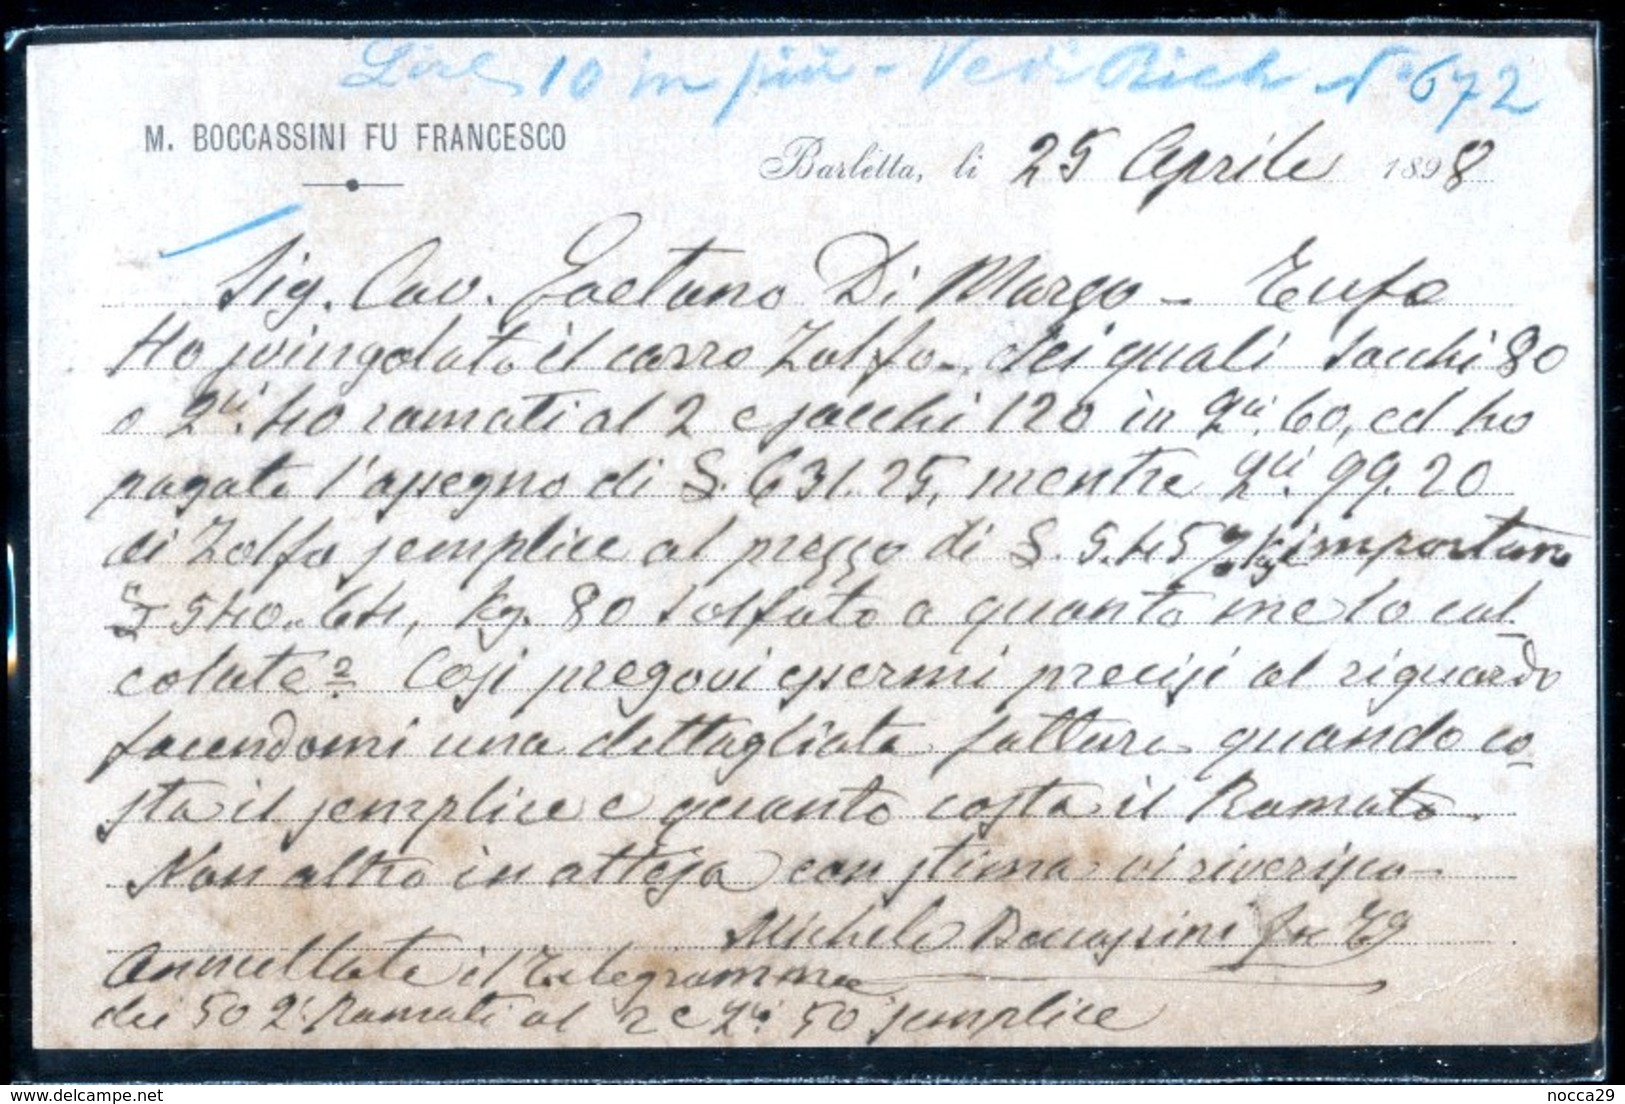 Lire 10 in più - Vedi Rich N° 672
M. BOCCASSINI FU FRANCESCO
Barletta, li 25 Aprile 1898
Sig. Cav. Gaetano Di Marzo -
Ho svingolato il carro Zolfo - dei quali sacchi 80
o Qli. 40 ramati al 2 e sacchi 120 in Qli. 60, ed ho
pagato l'assegno di £. 631.25, mentre Qli. 99.20
di Zolfo semplice al prezzo di £. 5.45 % Kg importano
£ 540.64, Kg. 80 solfato a quanto me lo cal_
colate? Così pregovi essermi precisi al riguardo
facendomi una dettagliata fattura quando co_
sta il semplice e quanto costa il Ramato.
Non altro in attesa con stima vi riverisco -
Michele Boccassini fu
Annullate il Telegramma
dei 50 Qi. Ramati al 2 e Qli. 50 semplice
delcampe.net
nocca29